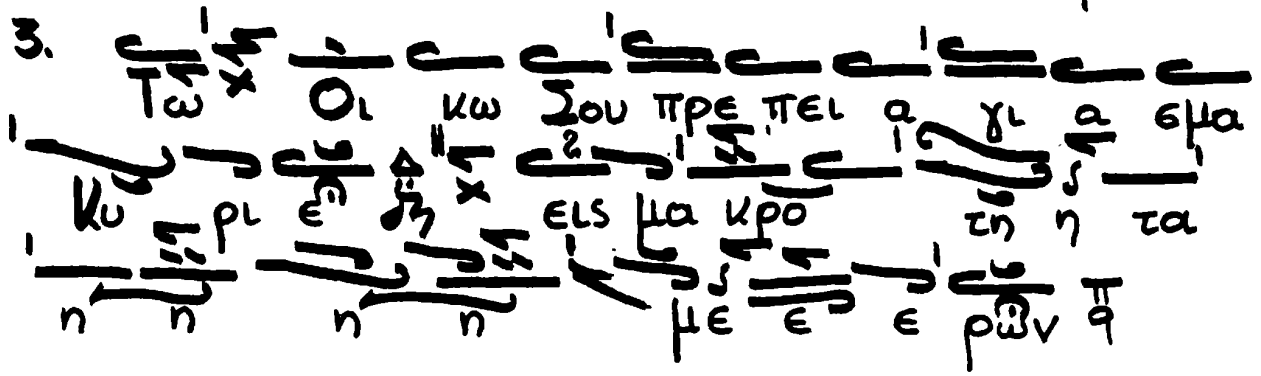 3. Τω Οι κω Σου πρε πει α γι α σμα
Κυ ρι ε Δ εις μα κρο τη η τα
η η η η με ε ε ρων π q